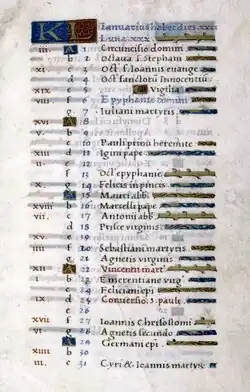 KL Ianuarius habet dies .xxxi.
Luna .xxx.
iii. A 1 Circuncisio domini
b 2 Octaua s. stephani
xi. c 3 Oct s. Ioannis euange
d 4 Oct sanctorū Innocentiū
xix. e 5 Vigilia
viii. f 6 Epyphanie domini
g 7 Iuliani martyris
xvi. A 8
v. b 9
c 10 Pauli primi heremite
xiii. d 11 Igini pape
ii. e 12
f 13 Oct epyphanie
x. g 14 Felicis in pincis
A 15 Mauri abb
xviii. b 16 Marcelli pape
vii. c 17 Antonii abb
d 18 Prisce virginis
xv. e 19
iiii. f 20 Sebastiani martyris
g 21 Agnetis virginis
xii. A 22 Vincentii mart
i. b 23 Emerentiane virg
c 24 Feliciani epi
ix. d 25 Conuersio s. pauli
e 26
xvii. f 27 Ioannis Chrisostomi
vi. g 28 Agnetis secundo
A 29 Germani epi
xiiii. b 30
iii. c 31 Cyri & Ioannis martyrs